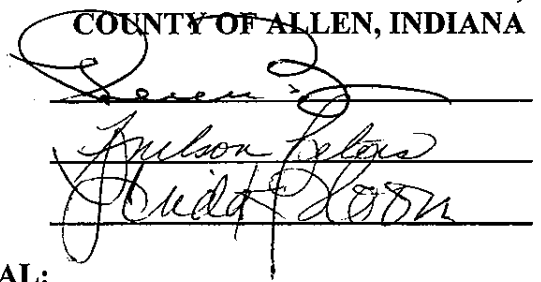 COUNTY OF ALLEN, INDIANA
Nelson Peters
Linda Bloom
AL: